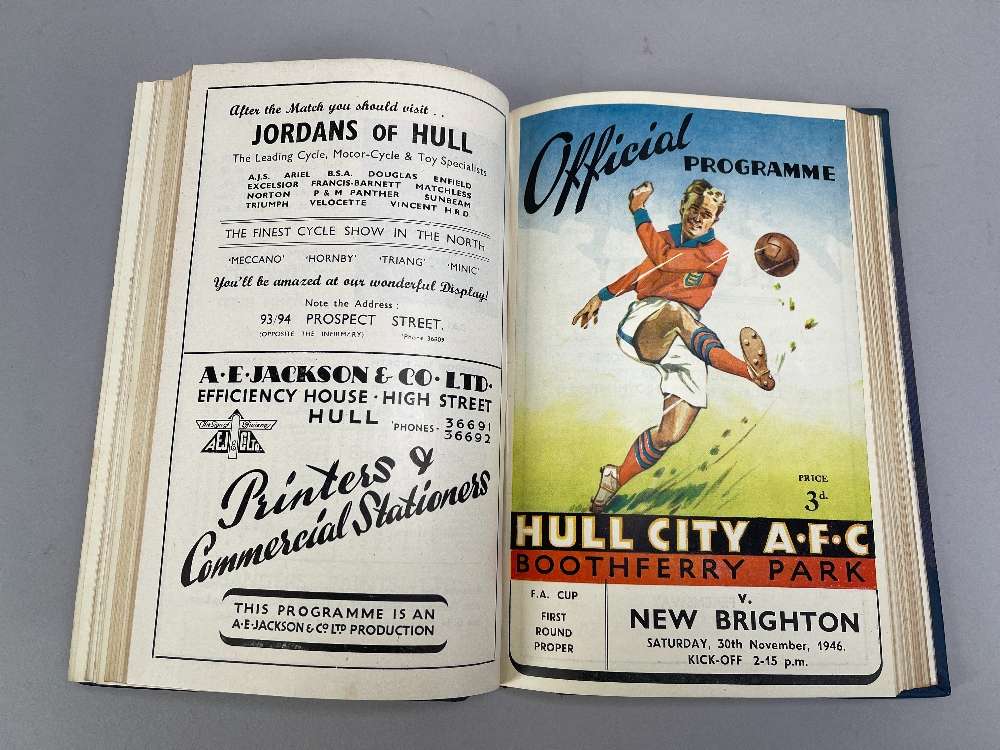 After the Match you should visit . .
JORDANS OF HULL
The Leading Cycle, Motor-Cycle & Toy Specialists
A.J.S. ARIEL B.S.A. DOUGLAS ENFIELD
EXCELSIOR FRANCIS-BARNETT MATCHLESS
NORTON P & M PANTHER SUNBEAM
TRIUMPH VELOCETTE VINCENT H R D
THE FINEST CYCLE SHOW IN THE NORTH
'MECCANO' 'HORNBY' 'TRIANG' 'MINIC'
You'll be amazed at our wonderful Display!
Note the Address :
93/94 PROSPECT STREET.
(OPPOSITE THE INFIRMARY) 'Phone 36809
A·E·JACKSON & CO·LTD·
EFFICIENCY HOUSE · HIGH STREET
HULL 'PHONES - 36691
36692
AEJ & Co Ltd
Printers &
Commercial Stationers
THIS PROGRAMME IS AN
A·E·JACKSON & Co LTD PRODUCTION
Official
PROGRAMME
PRICE
3d.
HULL CITY A·F·C
BOOTHFERRY PARK
F.A. CUP
FIRST
ROUND
PROPER
V.
NEW BRIGHTON
SATURDAY, 30th November, 1946.
KICK-OFF 2-15 p.m.